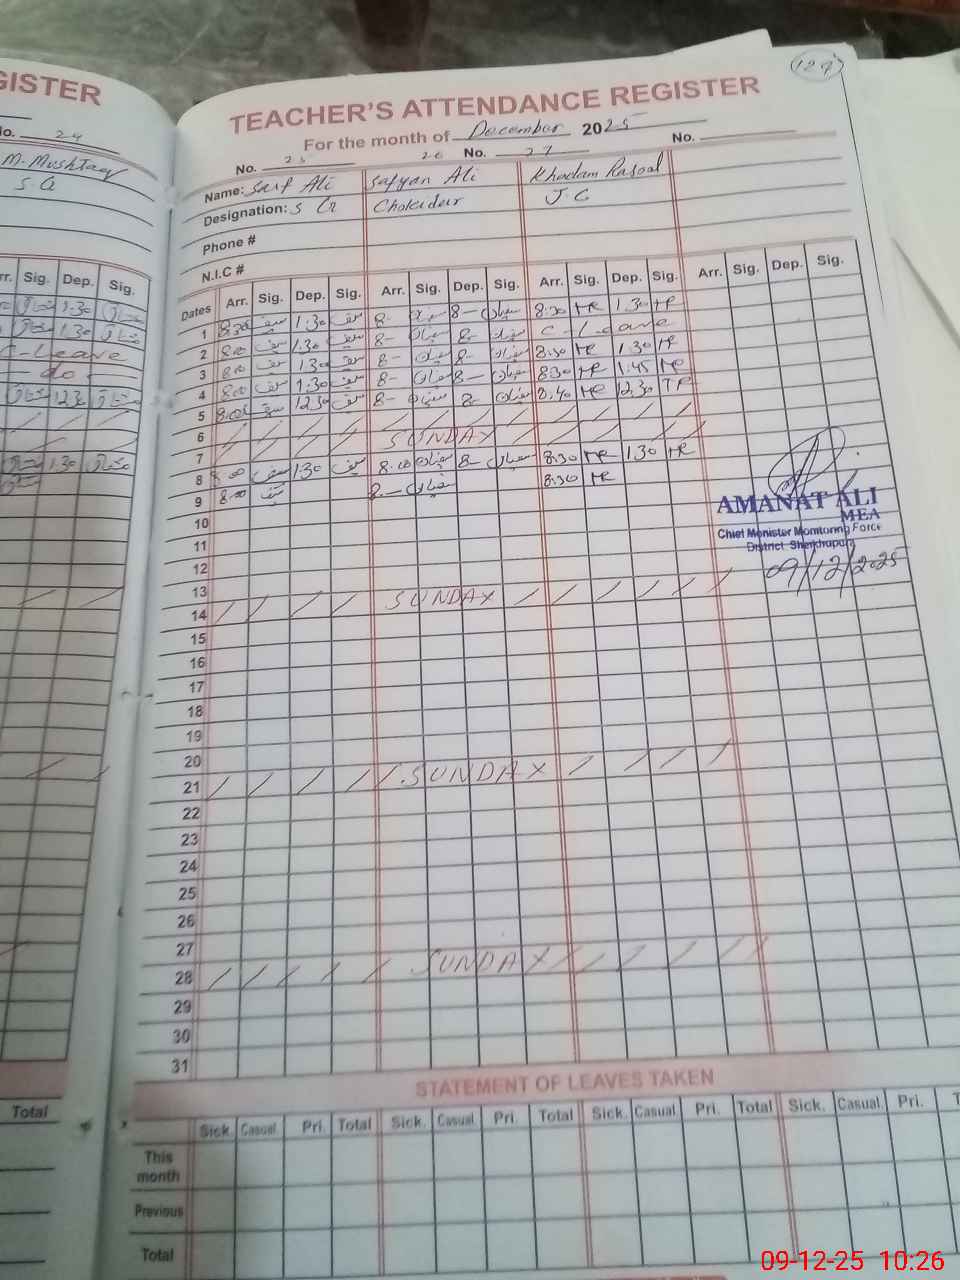 GISTER
No. 24
M. Mushtaq
S.G
rr. Sig. Dep. Sig.
1.30
1.30
C-Leave
do
12.30
1.30
Total
129
TEACHER'S ATTENDANCE REGISTER
For the month of December 2025
No. 25 26 No. 27 No.
Name: Saif Ali Safyan Ali Khadam Rasool
Designation: S G Chokidar J.C
Phone #
N.I.C #
Dates Arr. Sig. Dep. Sig. Arr. Sig. Dep. Sig. Arr. Sig. Dep. Sig. Arr. Sig. Dep. Sig.
1 8.00 سیف 1.30 سیف 8- سفیان 8- سفیان 8.30 MR 1.30 MR
2 8.00 سیف 1.30 سیف 8- سفیان 8- سفیان C-Leave
3 8.00 سیف 1.30 سیف 8- سفیان 8- سفیان 8.30 MR 1.30 MR
4 8.00 سیف 1.30 سیف 8- سفیان 8- سفیان 8.30 MR 1.45 MR
5 8.00 سیف 12.30 سیف 8- سفیان 8- سفیان 8.40 MR 12.30
6
7 SUNDAY
8 8.00 سیف 1.30 سیف 8.00 سفیان 8- سفیان 8.30 MR 1.30 MR
9 8.00 سیف 8- سفیان 8.30 MR
10
11
12
13
14 SUNDAY
15
16
17
18
19
20
21 SUNDAY
22
23
24
25
26
27
28 SUNDAY
29
30
31
AMANAT ALI
MEA
Chief Menister Momtoring Force
District Sheikhupura
09/12/2025
STATEMENT OF LEAVES TAKEN
Sick. Casual Pri. Total Sick. Casual Pri. Total Sick. Casual Pri. Total Sick. Casual. Pri. T
This month
Previous
Total
09-12-25 10:26